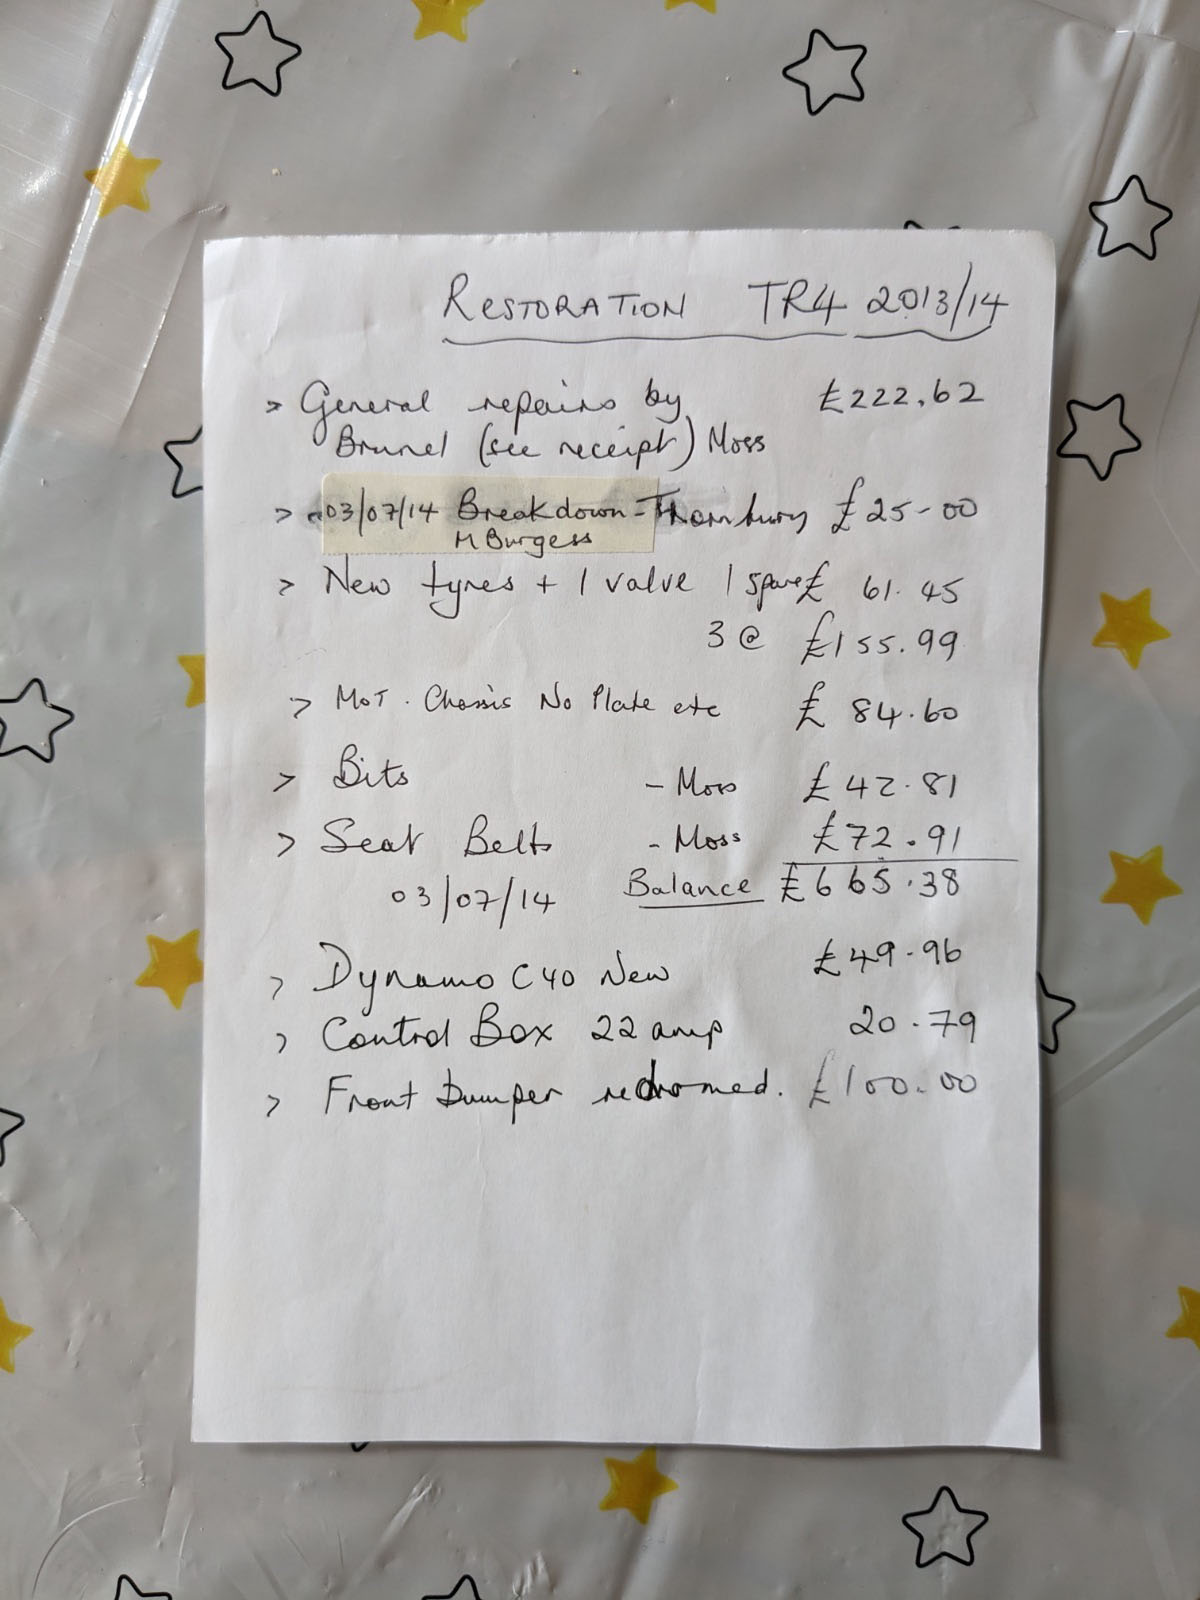 RESTORATION TR4 2013/14
> General repairs by £222.62
Brunel (see receipt) Moss
> 03/07/14 Breakdown - Thornbury £25-00
M Burgess
> New tyres + 1 valve 1 spare £ 61.45
3 @ £155.99
> MOT. Chassis No Plate etc £ 84.60
> Bits - Moss £42.81
> Seat Belts - Moss £72.91
03/07/14 Balance £665.38
> Dynamo C40 New £49.96
> Control Box 22 amp 20.79
> Front bumper rechromed. £100.00